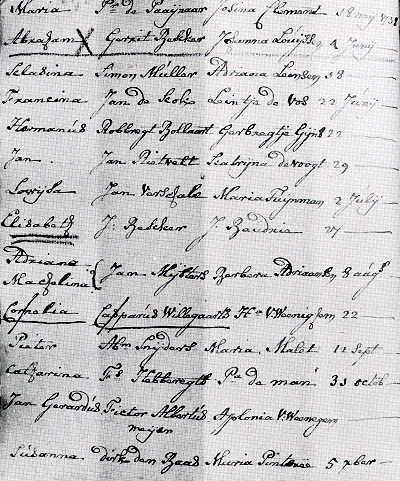 Maria Pr de Paaijpaar Josina Clement 18 meij 1731
Abraham X Gerrit Bekker Johanna Louijssen 1 Junij
Seladina Simon Muller Adriana Leensen 18
Francina Jan de Kok Leintje de Vos 22 Junij
Hermanus Robbregt Bollaart Gerbregtje Gijns 22
Jan Jan Rietvelt Catrijna de Voogt 29
Lowisa Jan Verschale Maria Tuijnman 2 Julij
Elisabeth J: Bekker J: Baudrie 27
Adriana
Machelina Jan Mijsters Berbera Adriaansen 8 augs
Cornelia Casparus Willegaarts Ha V: Weenigsem 22
Pieter Abm Snijders Maria Malot 12 Sept
Catharina Fs Hebberegts Pa de man 31 octob
Jan Gerardus Pieter Albertus Apolonia V: Weenegem
meijer
Susanna dirk den Baas Maria 5 xber